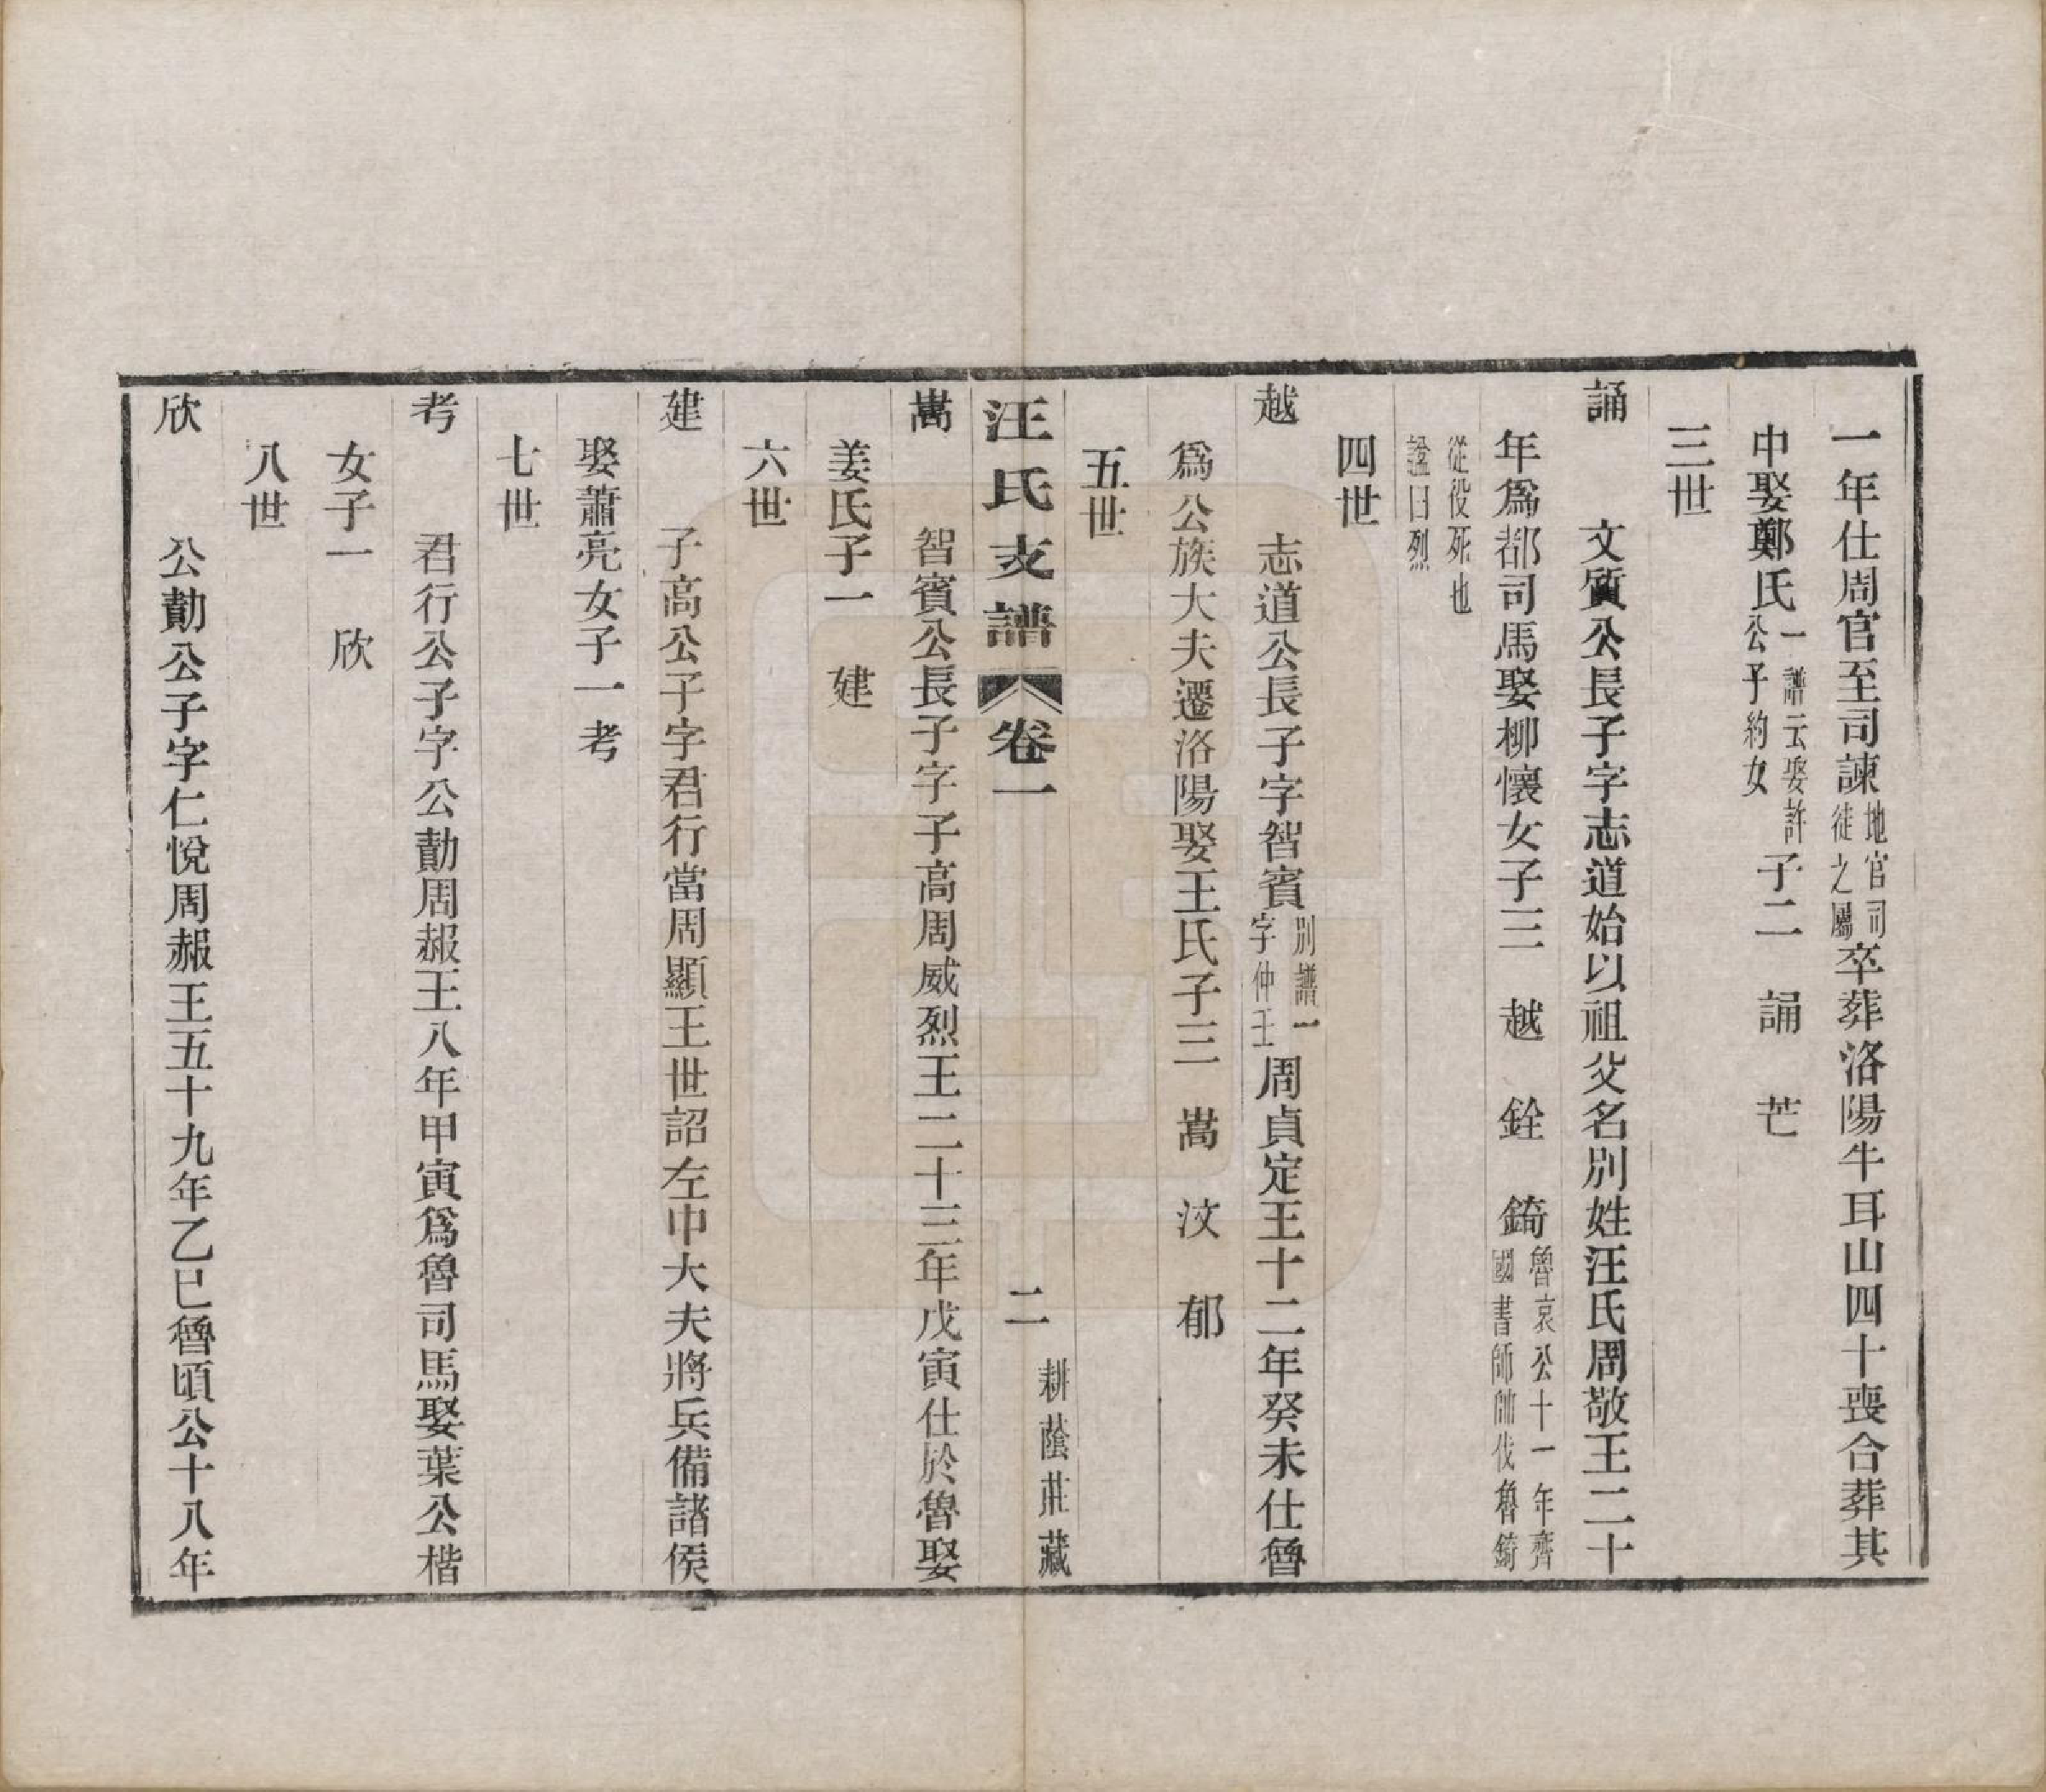 一年仕周官至司諫地官司徒之屬卒葬洛陽牛耳山四十喪合葬其
中娶鄭氏一譜云娶許公子約女子二 誦 芒
三世
誦 文質公長子字志道始以祖父名別姓汪氏周敬王二十
年爲都司馬娶柳懷女子三 越 銓 錡魯哀公十一年齊國書師帥伐魯錡
從役死也諡曰烈
四世
越 志道公長子字智賓別譜一字仲王周貞定王十二年癸未仕魯
爲公族大夫遷洛陽娶王氏子三 嵩 汶 郁
五世
汪氏支譜 卷一 二 耕蔭莊藏
嵩 智賓公長子字子高周威烈王二十三年戊寅仕於魯娶
姜氏子一 建
六世
建 子高公子字君行當周顯王世詔左巾大夫將兵備諸侯
娶蕭亮女子一 考
七世
考 君行公子字公勣周赧王八年甲寅爲魯司馬娶葉公楷
女子一 欣
八世
欣 公勣公子字仁悅周赧王五十九年乙巳魯頃公十八年